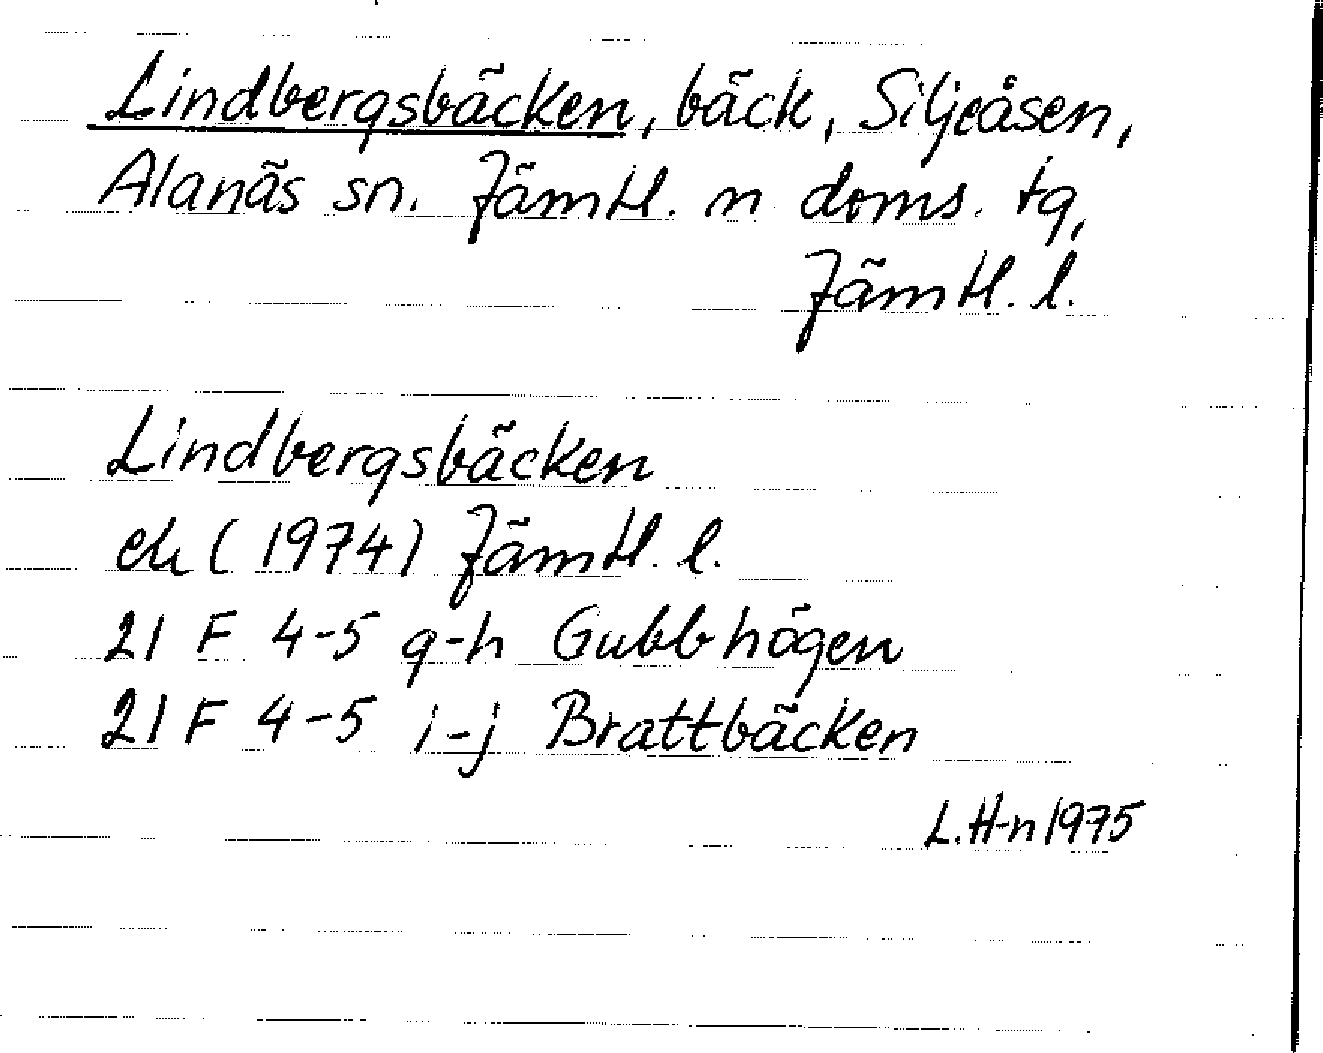 Lindbergsbäcken, bäck, Siljeåsen,
Alanäs sn. Jämtl. n doms. tg,
Jämtl. l.
Lindbergsbäcken
ek (1974) Jämtl. l.
21 F 4-5 g-h Gubbhögen
21 F 4-5 i-j Brattbäcken
L. H-n 1975